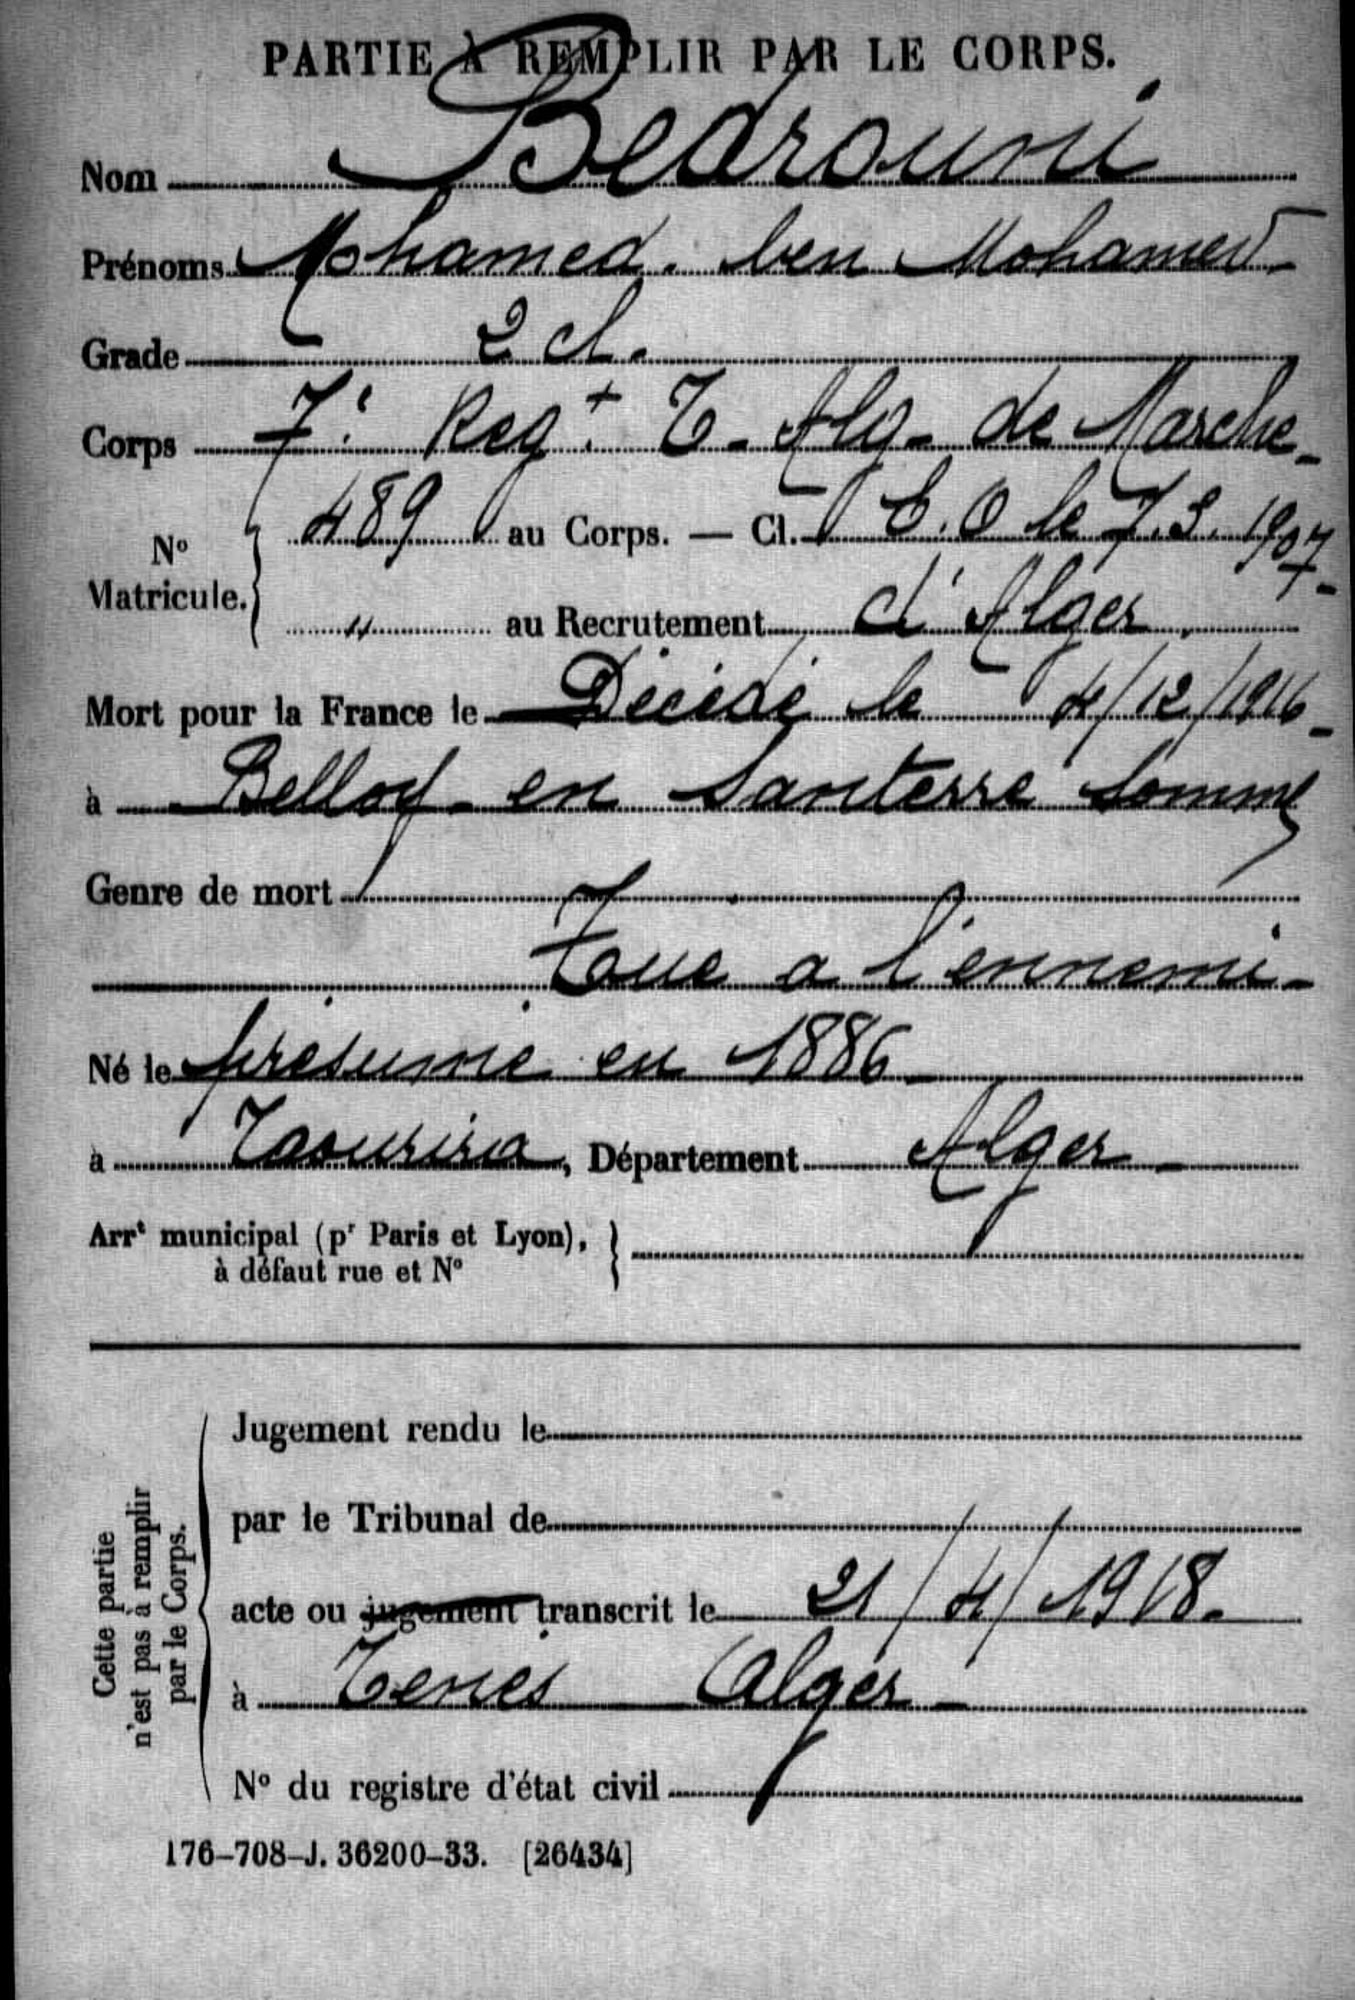 PARTIE À REMPLIR PAR LE CORPS.
Nom Bedrouni
Prénoms Mohamed. ben Mohamed
Grade 2 cl.
Corps 7e Regt. T. Alg. de Marche
No Matricule. 489 au Corps. — Cl. E.O le 7.3.1907
" au Recrutement d'Alger
Mort pour la France le Décédé le 4/12/1916
à Belloy en Santerre Somme
Genre de mort
Tué a l'ennemi
Né le présumé en 1886
à Taourira, Département Alger
Arrt municipal (pr Paris et Lyon),
à défaut rue et No
Cette partie n'est pas à remplir par le Corps.
Jugement rendu le
par le Tribunal de
acte ou jugement transcrit le 21/4/1918.
à Tenés Alger
No du registre d'état civil
176-708-J. 36200-33. [26434]